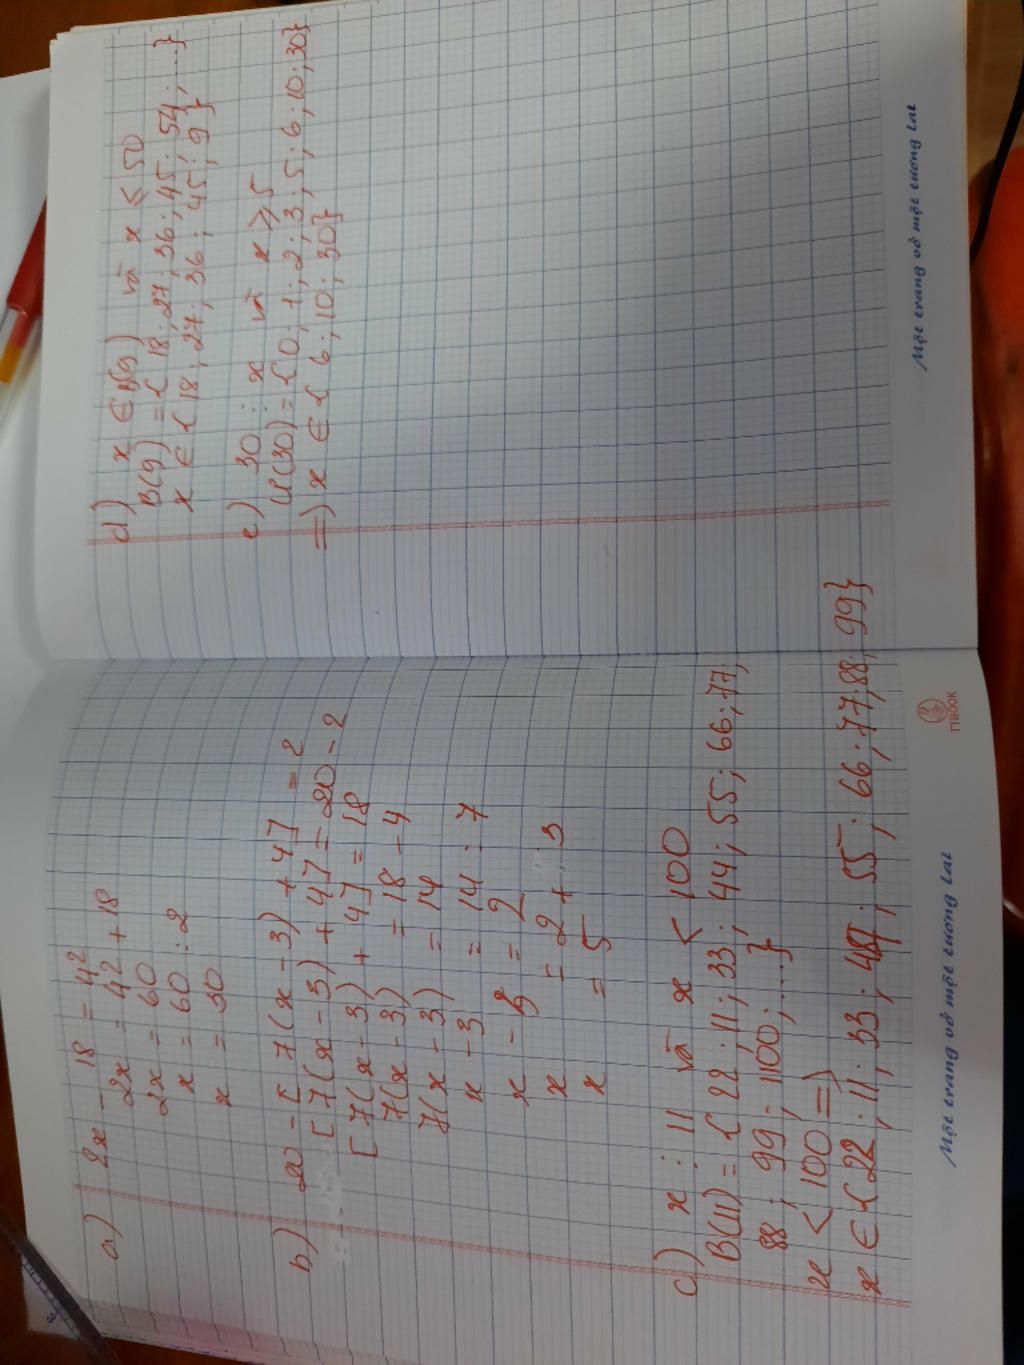 a) 2x - 18 = 42
2x = 42 + 18
2x = 60
x = 60 : 2
x = 30
b) 20 - [7(x - 3) + 4] = 2
[7(x - 3) + 4] = 20 - 2
[7(x - 3) + 4] = 18
7(x - 3) = 18 - 4
7(x - 3) = 14
x - 3 = 14 : 7
x - 3 = 2
x = 2 + 3
x = 5
c) x ⋮ 11 và x < 100
B(11) = { 22 ; 11 ; 33 ; 44 ; 55 ; 66 ; 77 ;
88 ; 99 ; 1100 ; ... }
x < 100 =>
x ∈ { 22 ; 11 ; 33 ; 44 ; 55 ; 66 ; 77 ; 88 ; 99}
Một trang vở một tương lai
TTBOOK
d) x ∈ B(9) và x ≤ 50
B(9) = { 18 ; 27 ; 36 ; 45 ; 54 ; ... }
x ∈ { 18 ; 27 ; 36 ; 45 ; 9 }
e) 30 ⋮ x và x ⩾ 5
Ư(30) = { 0 ; 1 ; 2 ; 3 ; 5 ; 6 ; 10 ; 30}
=> x ∈ { 6 ; 10 ; 30}
Một trang vở một tương lai